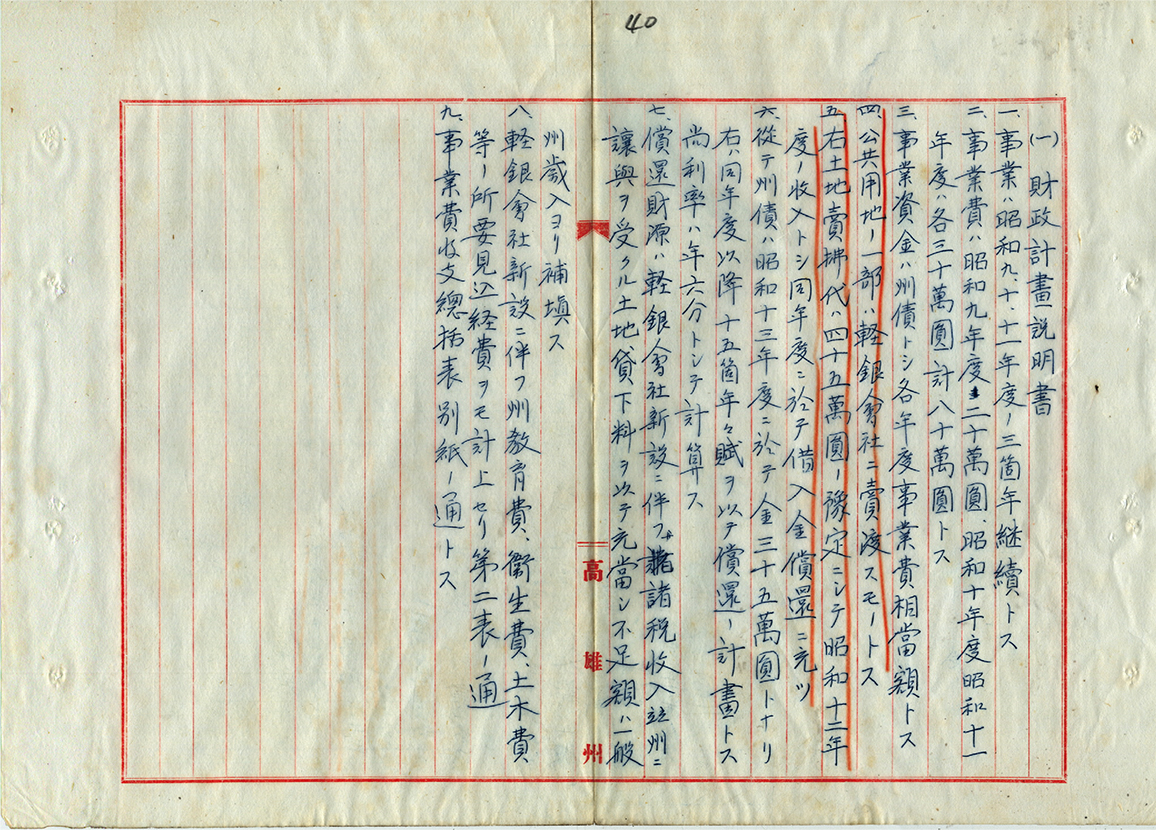 40
(一)財政計畫説明書
一、事業ハ昭和九、十、十一年度ノ三箇年継續トス
二、事業費ハ昭和九年度二十萬圓、昭和十年度昭和十一
年度ハ各三十萬圓計八十萬圓トス
三、事業資金ハ州債トシ各年度事業費相當額トス
四、公共用地ノ一部ハ軽銀會社ニ賣渡スモノトス
五、右土地賣拂代ハ四十五萬圓ノ豫定ニシテ昭和十三年
度ノ收入トシ同年度ニ於テ借入金償還ニ充ツ
六、從テ州債ハ昭和十三年度ニ於テ金三十五萬圓トナリ
右ハ同年度以降十五箇年々賦ヲ以テ償還ノ計畫トス
尚利率ハ年六分トシテ計算ス
七、償還財源ハ軽銀會社新設ニ伴フ諸税收入竝州ニ
讓與ヲ受クル土地貸下料ヲ以テ充當シ不足額ハ一般
州歳入ヨリ補塡ス
八、軽銀會社新設ニ伴フ州敎育費、衞生費、土木費
等ノ所要見込経費ヲモ計上セリ第二表ノ通
九、事業費收支總括表別紙ノ通トス
高雄州